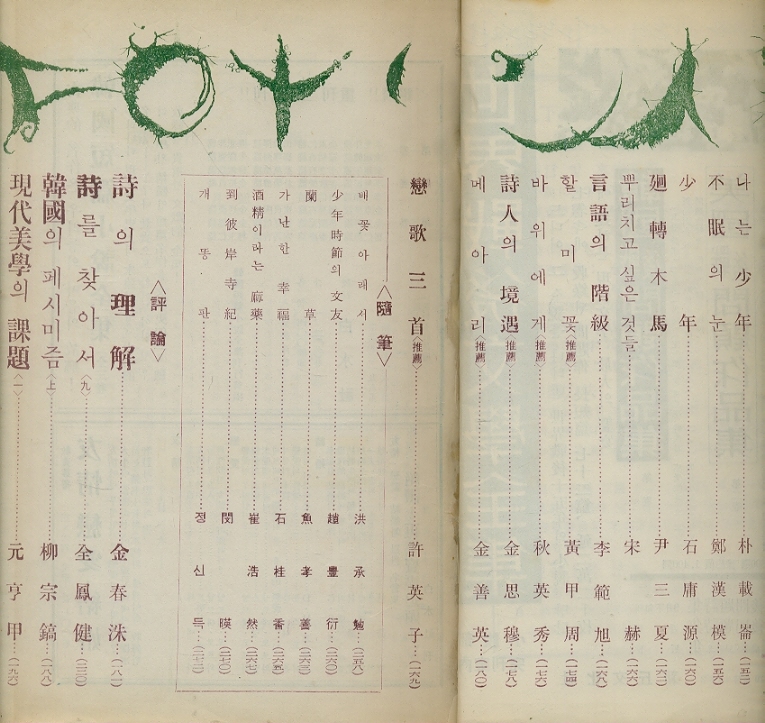 나는 少年……朴載崙…(一五三)
不眠의 눈……鄭漢模…(一五六)
少年……石庸源…(一六〇)
廻轉木馬……尹三夏…(一六二)
뿌리치고 싶은 것들……宋赫…(一六六)
言語의 階級……李範旭…(一六八)
할미꽃〈推薦〉……黃甲周…(一七四)
바위에게〈推薦〉……秋英秀…(一七六)
詩人의 境遇〈推薦〉……金思穆…(一七八)
메아리〈推薦〉……金善英…(一八〇)
戀歌三首〈推薦〉……許英子…(一六九)
〈隨筆〉
배꽃 아래서……洪承勉…(二五八)
少年時節의 文友……趙豊衍…(二六〇)
蘭草……魚孝善…
가난한 幸福……石桂香…(二六四)
酒精이라는 麻藥……崔浩然…(二六七)
到彼岸寺紀……閔暎…(二七〇)
개똥·판……정신득…
〈評論〉
詩의 理解……金春洙…(一八一)
詩를 찾아서〈九〉……全鳳健…(二三〇)
韓國의 페시미즘〈上〉……柳宗鎬…(一八八)
現代美學의 課題〈一〉……元亨甲…(一九六)